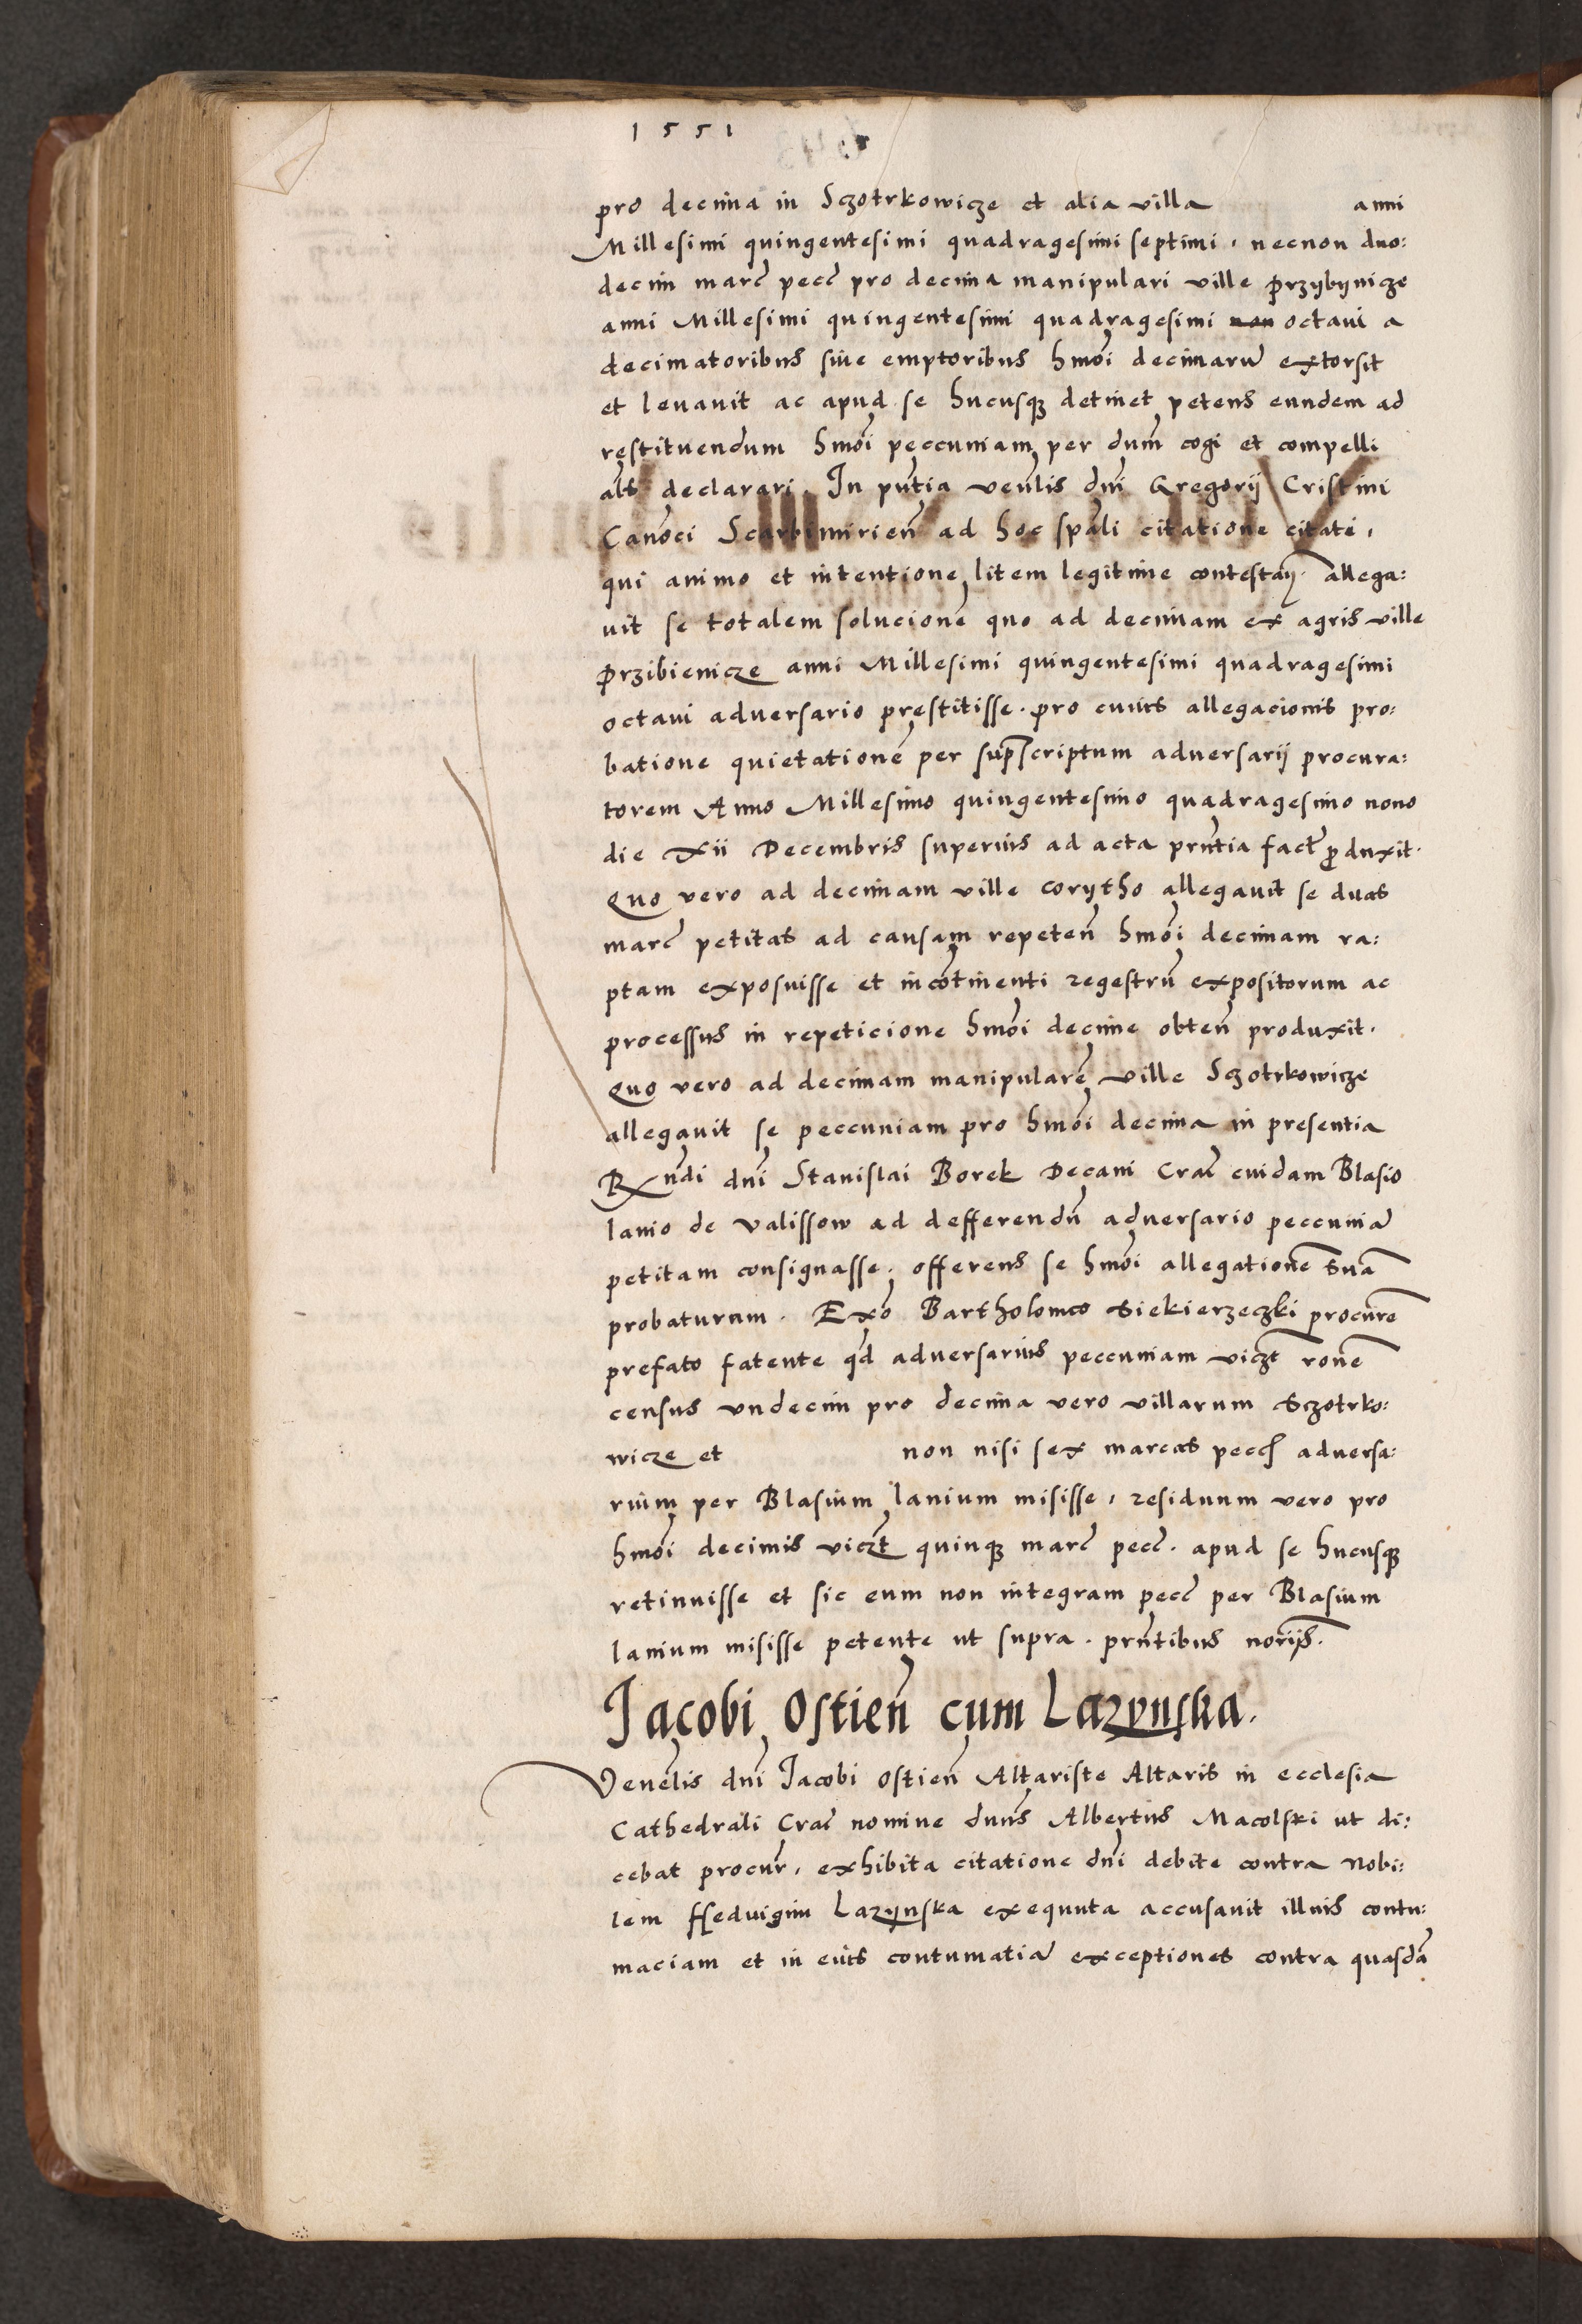 1551
pro decima in Sczotrkowicze et alia villa anni
Millesimi quingentesimi quadragesimi septimi, necnon duo:
decim marc̄ pecc̄ pro decima manipulari ville Przybynicze
anni Millesimi quingentesimi quadragesimi non octaui a
decimatoribus siue emptoribus hmōi decimarū extorsit
et leuauit ac apud se hucusqꝫ detinet petens eundem ad
restituendum hmōi peccuniam per dum̄ cogi et compelli
als̄ declarari. In pn̄tia venl̄is dn̄i Gregorij Cristini
Canōci Scarbimirien̄ ad hoc spāli citatione citati,
qui animo et intentione litem legitime contestan̄. allega:
uit se totalem solucionē quo ad decimam ex agris ville
Przibienicze anni Millesimi quingentesimi quadragesimi
octaui adversario prestitisse. pro cuius allegacionis pro:
batione quietationē per sup̄scriptum adversarij procura:
torem Anno Millesimo quingentesimo quadragesimo nono
die xii Decembris superius ad acta prn̄tia fact̄ produxit.
Quo vero ad decimam ville corytho allegauit se duas
marc̄ petitas ad causam repeten̄ hmōi decimam ra:
ptam exposuisse et incōtinenti regestrū expositorum ac
processus in repeticione hmōi decime obten̄ produxit.
Quo vero ad decimam manipularē ville Sczotrkowicze
allegauit se peccuniam pro hmōi decima in presentia
Rn̄di dn̄i Stanislai Borek Decani Crac̄ cuidam Blasio
lanio de Valissow ad defferendū adversario peccuniā
petitam consignasse. offerens se hmōi allegationē suā
probaturum. Exō Bartholomeo Siekierzeczki procurē
prefato fatente qd̄ adversarius peccuniam viczt̄ ronē
census vndecim pro decima vero villarum Sczotrko:
wicze et non nisi sex marcas pecc̄ adversa:
rium per Blasium lanium misisse, residuum vero pro
hmōi decimis viczt̄ quinqꝫ marc̄ pecc̄. apud se hucusqꝫ
retinuisse et sic eum non integram pecc̄ per Blasium
lanium misisse petente ut supra. prn̄tibus norijs̄.
Jacobi Ostien̄ cum Lazynska.
Venel̄is dn̄i Jacobi Ostien̄ Altariste Altaris in ecclesia
Cathedrali Crac̄ nomine dn̄us Albertus Macolski ut di:
cebat procur̄, exhibita citatione dn̄i debite contra Nobi:
lem Hedvigim Lazynska exequuta accusauit illius contu:
maciam et in eius contumatiā exceptiones contra quasdā